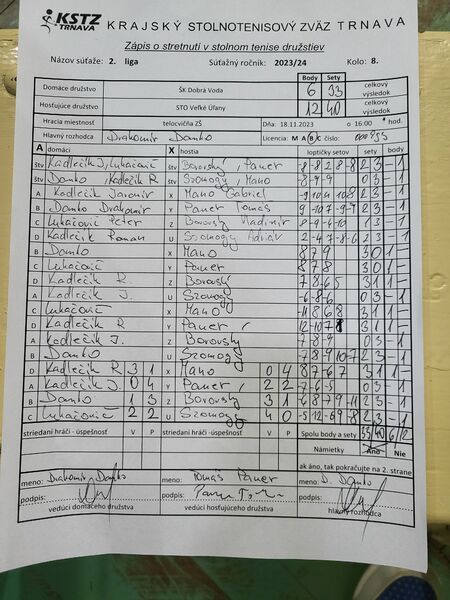 KSTZ TRNAVA KRAJSKÝ STOLNOTENISOVÝ ZVÄZ TRNAVA
Zápis o stretnutí v stolnom tenise družstiev
Názov súťaže: 2. liga Súťažný ročník: 2023/24 Kolo: 8.
Body Sety
Domáce družstvo ŠK Dobrá Voda 6 33 celkový výsledok
Hosťujúce družstvo STO Veľké Úľany 12 40 celkový výsledok
Hracia miestnosť telocvičňa ZŠ Dňa: 18.11.2023 o 16:00 hod.
Hlavný rozhodca Drahomír Danko Licencia: M A B C číslo:
A domáci X hostia loptičky setov sety body
štv Kadlečík J, Lukačovič štv Borovský, Pauer 2 3 - 1
štv Danko, Kadlečík R štv Szomogy, Mano 2 3 - 1
A Kadlečík Jaromír X Mano Gabriel 2 3 - 1
B Danko Drahomír Y Pauer Tomáš 2 3 - 1
C Lukačovič Peter Z Borovský Vladimír 8 -9 -4 -10 1 3 - 1
D Kadlečík Roman U Szomogy Adrián 2 -4 7 -8 -6 2 3 - 1
B Danko X Mano 8 7 9 3 0 1 -
C Lukačovič Y Pauer 8 7 8 3 0 1 -
D Kadlečík R. Z Borovský 7 8 -6 5 3 1 1 -
A Kadlečík J. U Szomogy -6 -8 -6 0 3 - 1
C Lukačovič X Mano -11 8 6 8 3 1 1 -
D Kadlečík R Y Pauer 3 1 1 -
A Kadlečík J. Z Borovský -7 -8 -9 0 3 - 1
B Danko U Szomogy 2 3 - 1
D Kadlečík R 3 1 X Mano 0 4 8 -7 6 7 3 1 1 -
A Kadlečík J. 0 4 Y Pauer 2 2 -7 -6 -5 0 3 - 1
B Danko 1 3 Z Borovský 3 1 2 3 - 1
C Lukačovič 2 2 U Szomogy 4 0 -5 12 -6 9 -8 2 3 - 1
striedaní hráči - úspešnosť V P striedaní hráči - úspešnosť V P Spolu body a sety 33/40 6/12
Námietky Áno Nie
ak áno, tak pokračujte na 2. strane
meno: Drahomír Danko meno: Tomáš Pauer meno: D. Danko
podpis: podpis: podpis:
vedúci domáceho družstva vedúci hosťujúceho družstva hlavný rozhodca